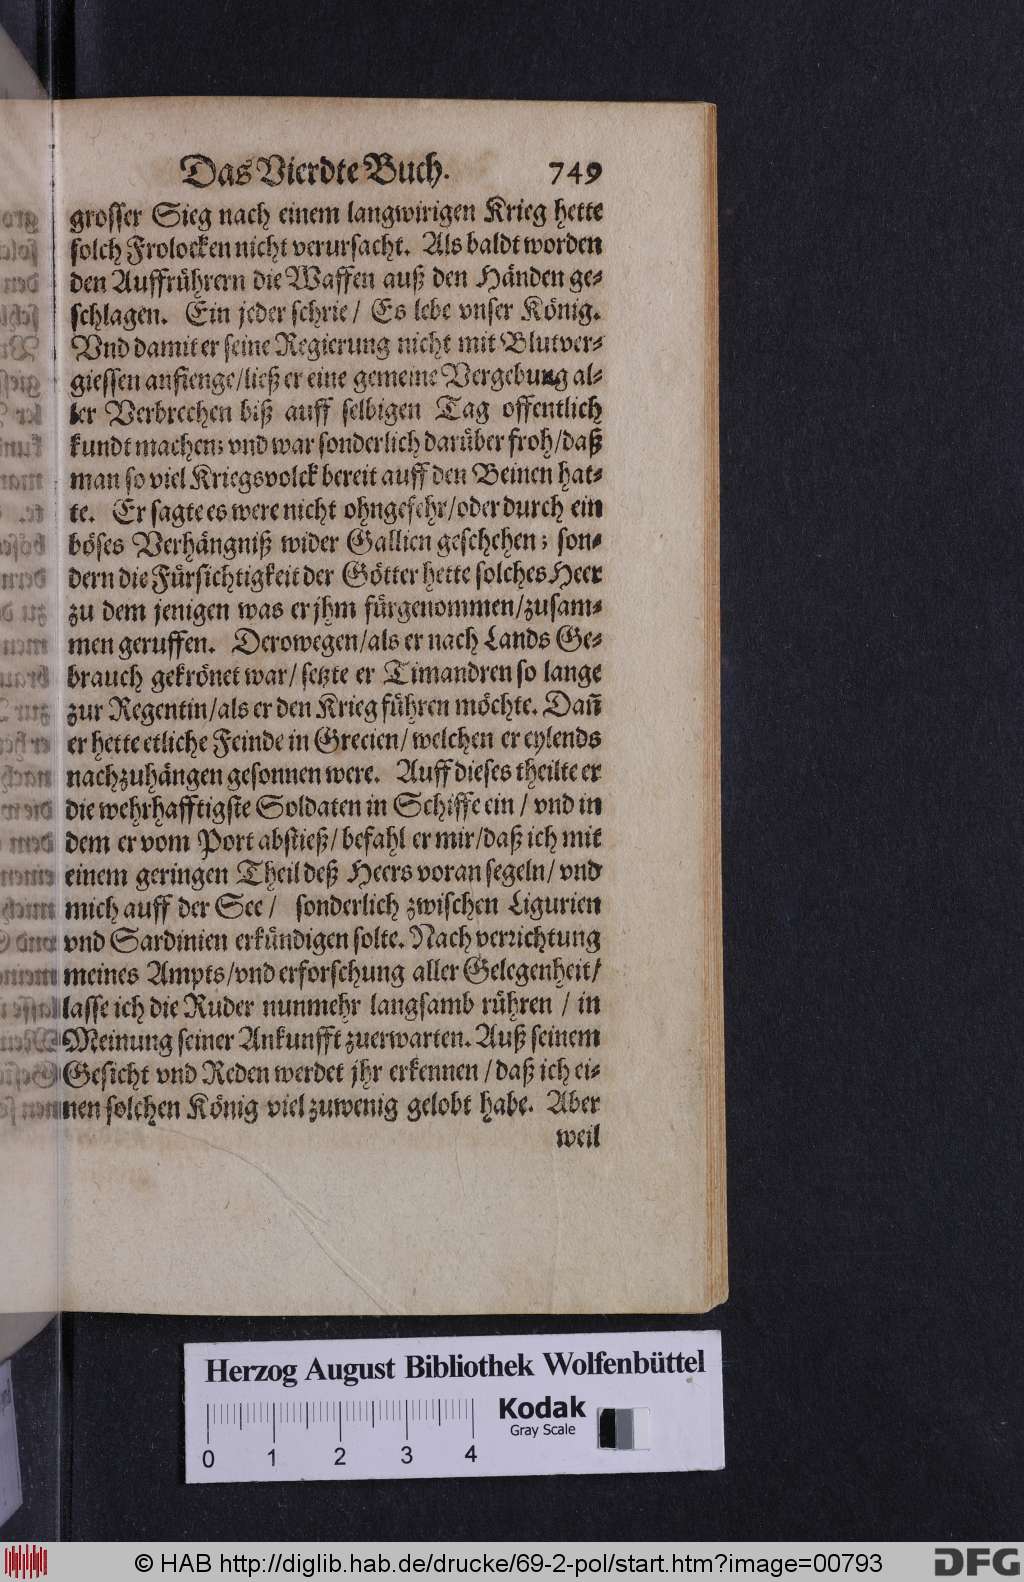 Das Vierdte Buch. 749
grosser Sieg nach einem langwirigen Krieg hette
solch Frolocken nicht verursacht. Als baldt worden
den Auffrührern die Waffen auß den Händen ge-
schlagen. Ein jeder schrie / Es lebe vnser König.
Vnd damit er seine Regierung nicht mit Blutver-
giessen anfienge / ließ er eine gemeine Vergebung al-
ler Verbrechen biß auff selbigen Tag offentlich
kundt machen; vnd war sonderlich darüber froh / daß
man so viel Kriegsvolck bereit auff den Beinen hat-
te. Er sagte es were nicht ohngefehr / oder durch ein
böses Verhängniß wider Gallien geschehen; son-
dern die Fürsichtigkeit der Götter hette solches Heer
zu dem jenigen was er jhm fürgenommen / zusam-
men geruffen. Derowegen / als er nach Lands Ge-
brauch gekrönet war / setzte er Timandren so lange
zur Regentin / als er den Krieg führen möchte. Dañ
er hette etliche Feinde in Grecien / welchen er eylends
nachzuhängen gesonnen were. Auff dieses theilte er
die wehrhafftigste Soldaten in Schiffe ein / vnd in
dem er vom Port abstieß / befahl er mir / daß ich mit
einem geringen Theil deß Heers voran segeln / vnd
mich auff der See / sonderlich zwischen Ligurien
vnd Sardinien erkündigen solte. Nach verrichtung
meines Ampts / vnd erforschung aller Gelegenheit /
lasse ich die Ruder nunmehr langsamb rühren / in
Meinung seiner Ankunfft zuerwarten. Auß seinem
Gesicht vnd Reden werdet jhr erkennen / daß ich ei-
nen solchen König viel zuwenig gelobt habe. Aber
weil
Herzog August Bibliothek Wolfenbüttel
Kodak
Gray Scale
0 1 2 3 4
© HAB http://diglib.hab.de/drucke/69-2-pol/start.htm?image=00793
DFG